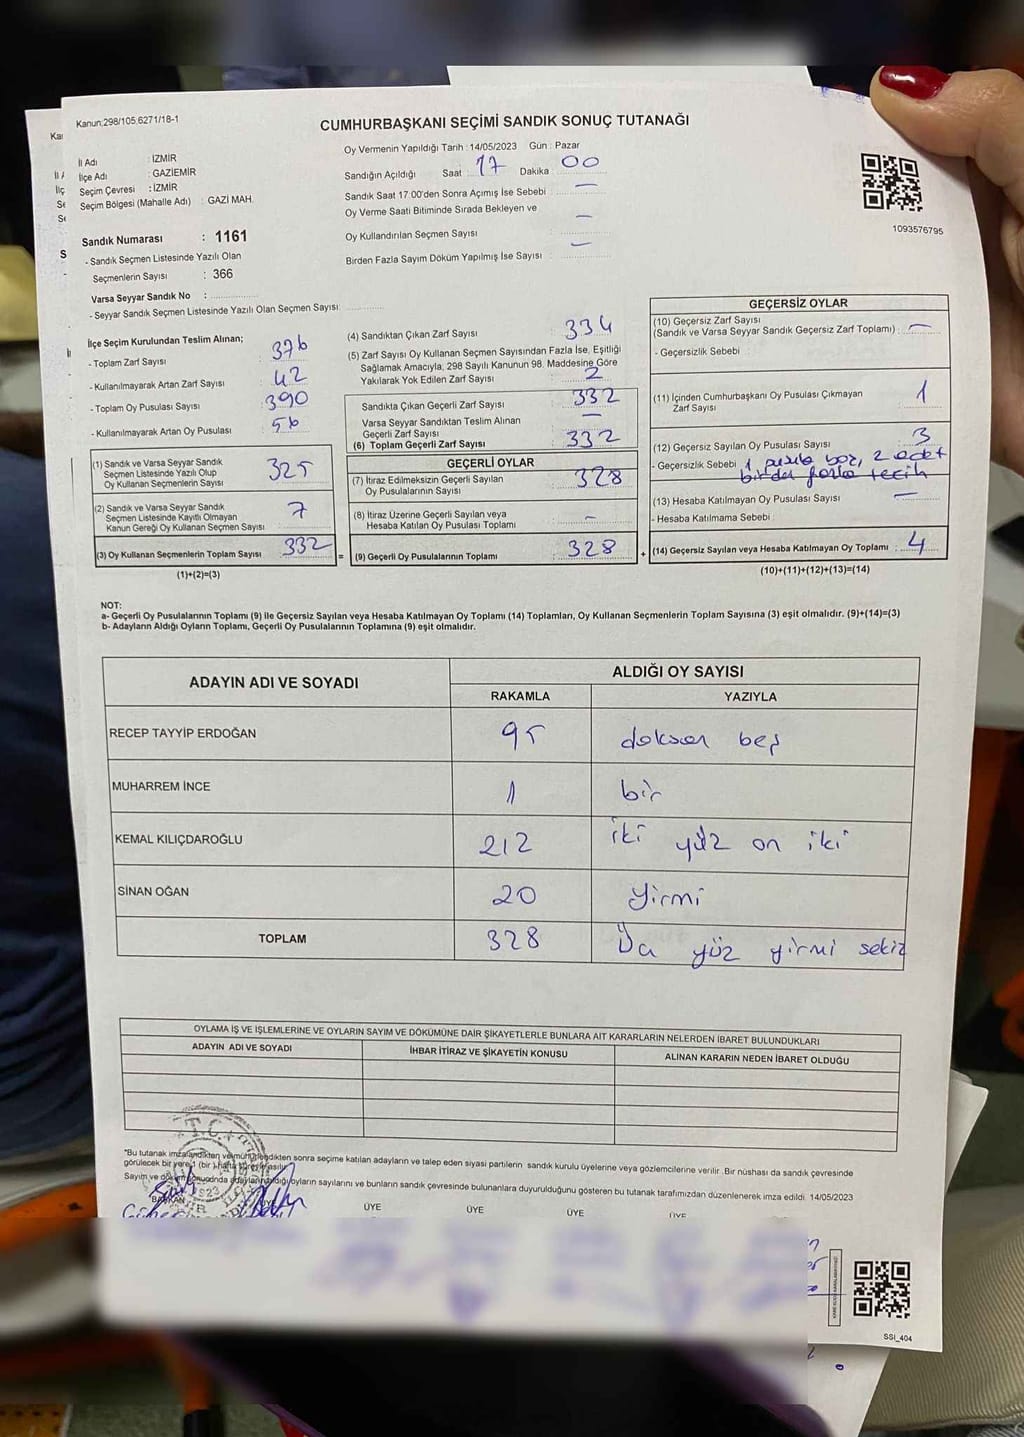 Kanun:298/105;6271/18-1
CUMHURBAŞKANI SEÇİMİ SANDIK SONUÇ TUTANAĞI
İl Adı : İZMİR
İlçe Adı : GAZİEMİR
Seçim Çevresi : İZMİR
Seçim Bölgesi (Mahalle Adı) : GAZİ MAH.
Sandık Numarası : 1161
- Sandık Seçmen Listesinde Yazılı Olan
Seçmenlerin Sayısı : 366
Varsa Seyyar Sandık No :
- Seyyar Sandık Seçmen Listesinde Yazılı Olan Seçmen Sayısı:
Oy Vermenin Yapıldığı Tarih : 14/05/2023 Gün : Pazar
Sandığın Açıldığı Saat 17 Dakika 00
Sandık Saat 17:00'den Sonra Açımış İse Sebebi —
Oy Verme Saati Bitiminde Sırada Bekleyen ve
Oy Kullandırılan Seçmen Sayısı —
Birden Fazla Sayım Döküm Yapılmış İse Sayısı —
1093576795
İlçe Seçim Kurulundan Teslim Alınan;
- Toplam Zarf Sayısı 376
- Kullanılmayarak Artan Zarf Sayısı 42
- Toplam Oy Pusulası Sayısı 390
- Kullanılmayarak Artan Oy Pusulası 56
(1) Sandık ve Varsa Seyyar Sandık
Seçmen Listesinde Yazılı Olup
Oy Kullanan Seçmenlerin Sayısı 325
(2) Sandık ve Varsa Seyyar Sandık
Seçmen Listesinde Kayıtlı Olmayan
Kanun Gereği Oy Kullanan Seçmen Sayısı 7
(3) Oy Kullanan Seçmenlerin Toplam Sayısı 332
(1)+(2)=(3)
(4) Sandıktan Çıkan Zarf Sayısı 334
(5) Zarf Sayısı Oy Kullanan Seçmen Sayısından Fazla İse, Eşitliği
Sağlamak Amacıyla; 298 Sayılı Kanunun 98. Maddesine Göre
Yakılarak Yok Edilen Zarf Sayısı 2
Sandıkta Çıkan Geçerli Zarf Sayısı 332
Varsa Seyyar Sandıktan Teslim Alınan
Geçerli Zarf Sayısı —
(6) Toplam Geçerli Zarf Sayısı 332
GEÇERLİ OYLAR
(7) İtiraz Edilmeksizin Geçerli Sayılan
Oy Pusulalarının Sayısı 328
(8) İtiraz Üzerine Geçerli Sayılan veya
Hesaba Katılan Oy Pusulası Toplamı -
= (9) Geçerli Oy Pusulalarının Toplamı 328
GEÇERSİZ OYLAR
(10) Geçersiz Zarf Sayısı
(Sandık ve Varsa Seyyar Sandık Geçersiz Zarf Toplamı) : —
- Geçersizlik Sebebi
(11) İçinden Cumhurbaşkanı Oy Pusulası Çıkmayan
Zarf Sayısı 1
(12) Geçersiz Sayılan Oy Pusulası Sayısı 3
- Geçersizlik Sebebi 1 pusula boş, 2 adet
birden fazla tercih
(13) Hesaba Katılmayan Oy Pusulası Sayısı —
- Hesaba Katılmama Sebebi
+ (14) Geçersiz Sayılan veya Hesaba Katılmayan Oy Toplamı : 4
(10)+(11)+(12)+(13)=(14)
NOT:
a- Geçerli Oy Pusulalarının Toplamı (9) ile Geçersiz Sayılan veya Hesaba Katılmayan Oy Toplamı (14) Toplamları, Oy Kullanan Seçmenlerin Toplam Sayısına (3) eşit olmalıdır. (9)+(14)=(3)
b- Adayların Aldığı Oyların Toplamı, Geçerli Oy Pusulalarının Toplamına (9) eşit olmalıdır.
ADAYIN ADI VE SOYADI ALDIĞI OY SAYISI
RAKAMLA YAZIYLA
RECEP TAYYİP ERDOĞAN 95 doksan beş
MUHARREM İNCE 1 bir
KEMAL KILIÇDAROĞLU 212 iki yüz on iki
SİNAN OĞAN 20 Yirmi
TOPLAM 328 yüz yirmi sekiz
OYLAMA İŞ VE İŞLEMLERİNE VE OYLARIN SAYIM VE DÖKÜMÜNE DAİR ŞİKAYETLERLE BUNLARA AİT KARARLARIN NELERDEN İBARET BULUNDUKLARI
ADAYIN ADI VE SOYADI İHBAR İTİRAZ VE ŞİKAYETİN KONUSU ALINAN KARARIN NEDEN İBARET OLDUĞU
*Bu tutanak imzalandıkten ve mühürlendikten sonra seçime katılan adayların ve talep eden siyasi partilerin sandık kurulu üyelerine veya gözlemcilerine verilir. Bir nüshası da sandık çevresinde
görülecek bir yere 1 (bir) hafta süreyle asılır.
Sayım ve döküm sonucunda adayların aldığı oyların sayılarını ve bunların sandık çevresinde bulunanlara duyurulduğunu gösteren bu tutanak tarafımızdan düzenlenerek imza edildi. 14/05/2023
T.C.
BAŞKAN ÜYE ÜYE ÜYE ÜYE ÜYE
SSI_404